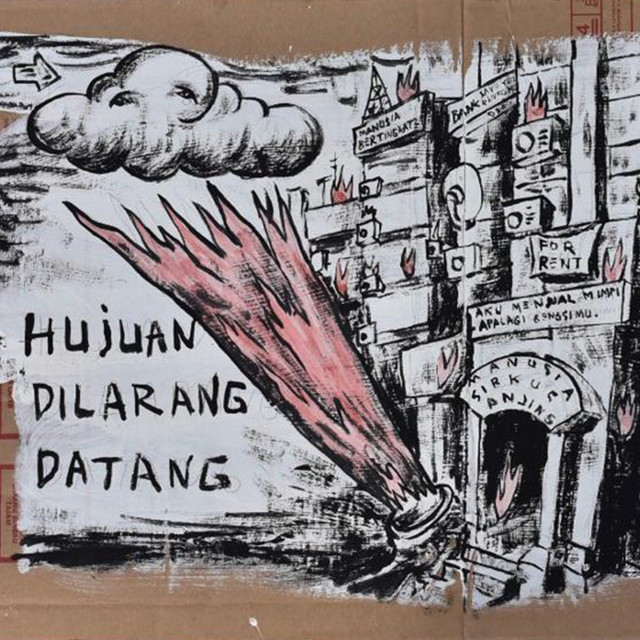 HUJUAN
DILARANG
DATANG
MANUSIA
BERTINGKAT
BANK
FOR
RENT
AKU MENJUAL MIMPI
APALAGI GENGSIMU.
MANUSIA
SIRKUS
ANJING